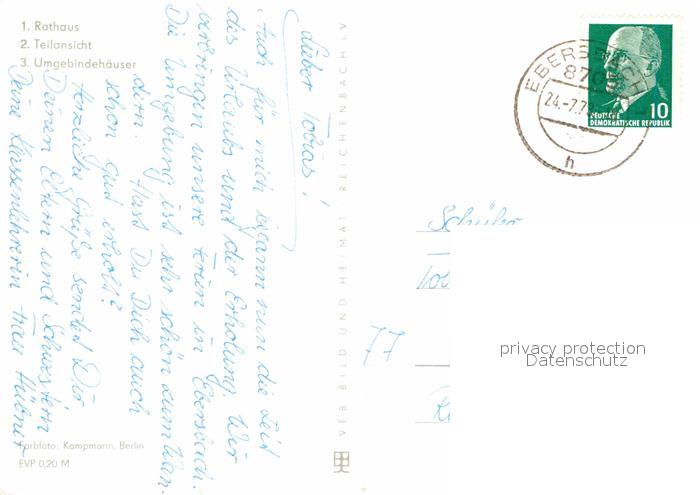 1. Rathaus
2. Teilansicht
3. Umgebindehäuser
Lieber Tobias!
Auch für mich begann nun die Zeit
des Urlaubs und der Erholung. Wir
verbringen unsere Ferien in Ebersbach.
Die Umgebung ist sehr schön zum Wan-
dern. Hast Du Dich auch
schon gut erholt?
Herzliche Grüße sendet Dir
Deinen Eltern und Schwestern
Deine Klassenlehrerin Frau Hübner
Farbfoto: Kampmann, Berlin
EVP 0,20 M
VEB BILD UND HEIMAT REICHENBACH i. V.
EBERSBACH
8705
24.-7.72
h
10
DEUTSCHE
DEMOKRATISCHE REPUBLIK
Schüler
Tob
77
privacy protection
Datenschutz